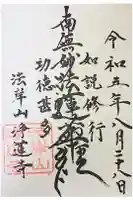 令和五年八月二十八日
如説修行
南無妙法蓮華経
功徳甚多
法華山
浄蓮寺